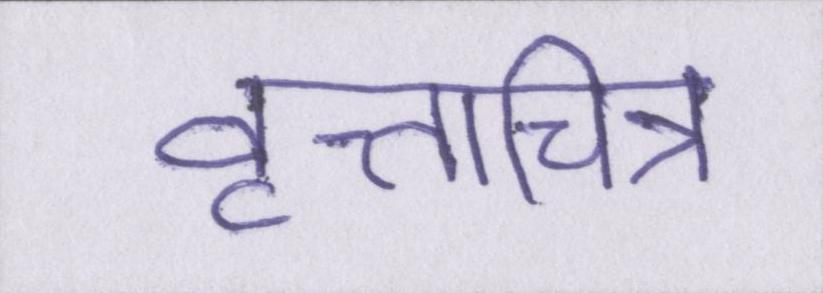 वृत्ताचित्र